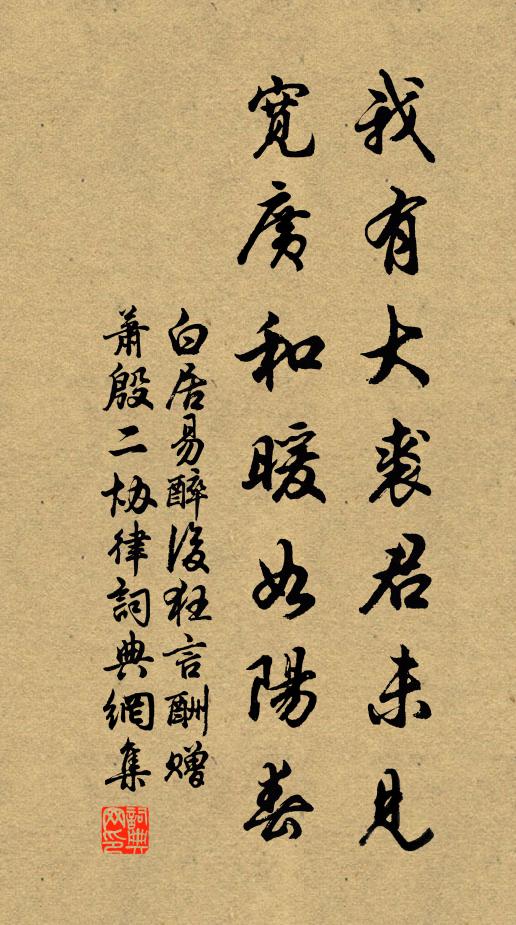 我有大裘君未見
寬廣和暖如陽春
白居易醉後狂言酬贈
蕭殷二協律詞典網集
詞典網印